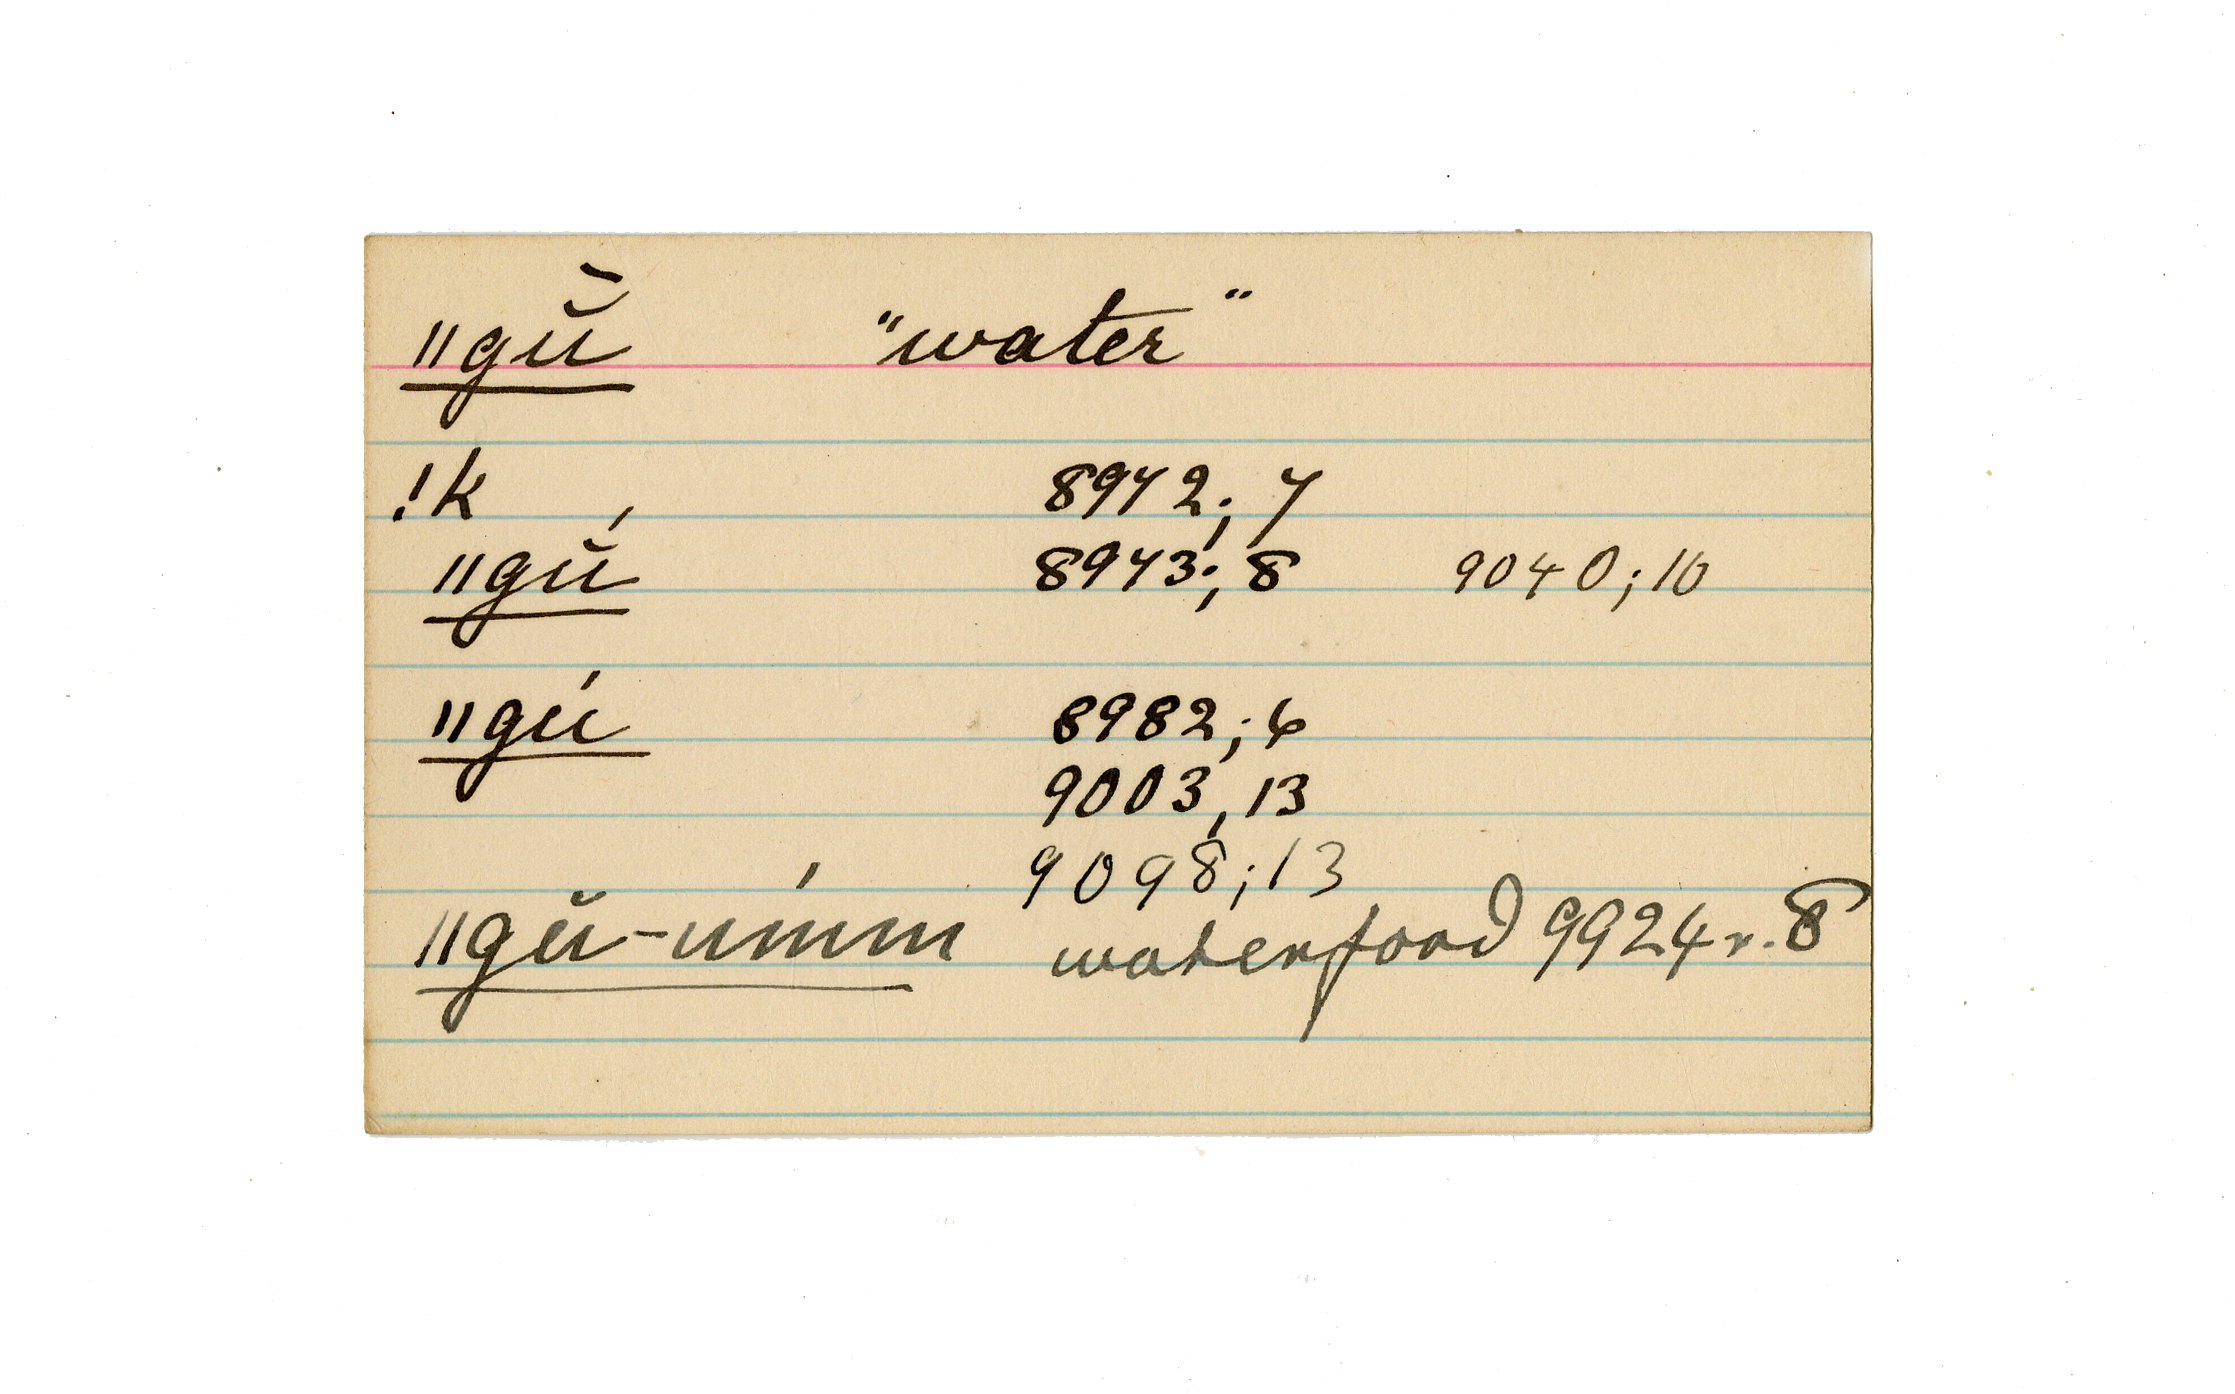 ǁgŭ̀ "water"
!k 8942; 7
ǁgŭ́ 8943; 8 9040; 10
ǁgú 8982; 6
9003, 13
9098; 13
ǁgŭ-uḿm waterfood 9924 r. 8